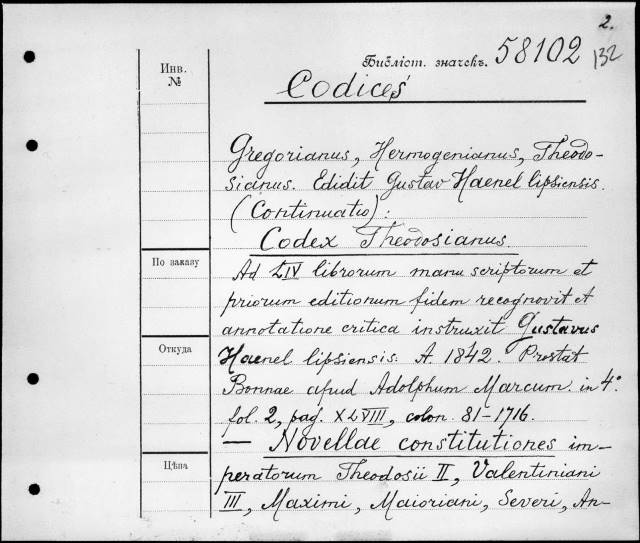 2.
Библіот. значекъ. 58102
132
Codices
Инв.
№
Gregorianus, Hermogenianus, Theodo-
sianus. Edidit Gustav Haenel lipsiensis.
(Continuatio):
Codex Theodosianus.
По заказу
Ad LIV librorum manu scriptorum et
priorum editionum fidem recognovit et
annotatione critica instruxit Gustavus
Откуда
Haenel lipsiensis. A. 1842. Prostat
Bonnae apud Adolphum Marcum. in 4°.
fol. 2, pag. XLVIII, colon. 81-1716.
— Novellae constitutiones im-
Цѣна
peratorum Theodosii II, Valentiniani
III, Maximi, Maioriani, Severi, An-